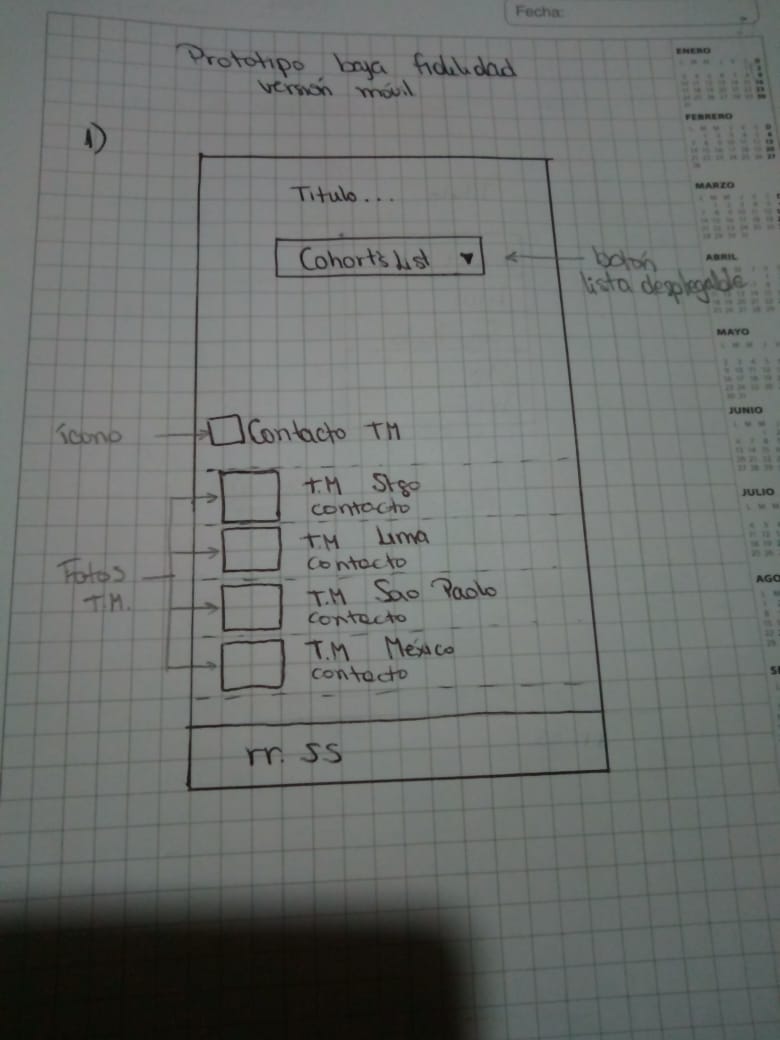 Fecha:
Prototipo baja fidelidad
versión móvil
1)
Titulo...
Cohorts List
botón
lista desplegable
ícono
Contacto TM
T.M Stgo
contacto
T.M Lima
contacto
Fotos
T.M.
T.M Sao Paolo
contacto
T.M México
contacto
rr. SS
ENERO
FEBRERO
MARZO
ABRIL
MAYO
JUNIO
JULIO
AGO